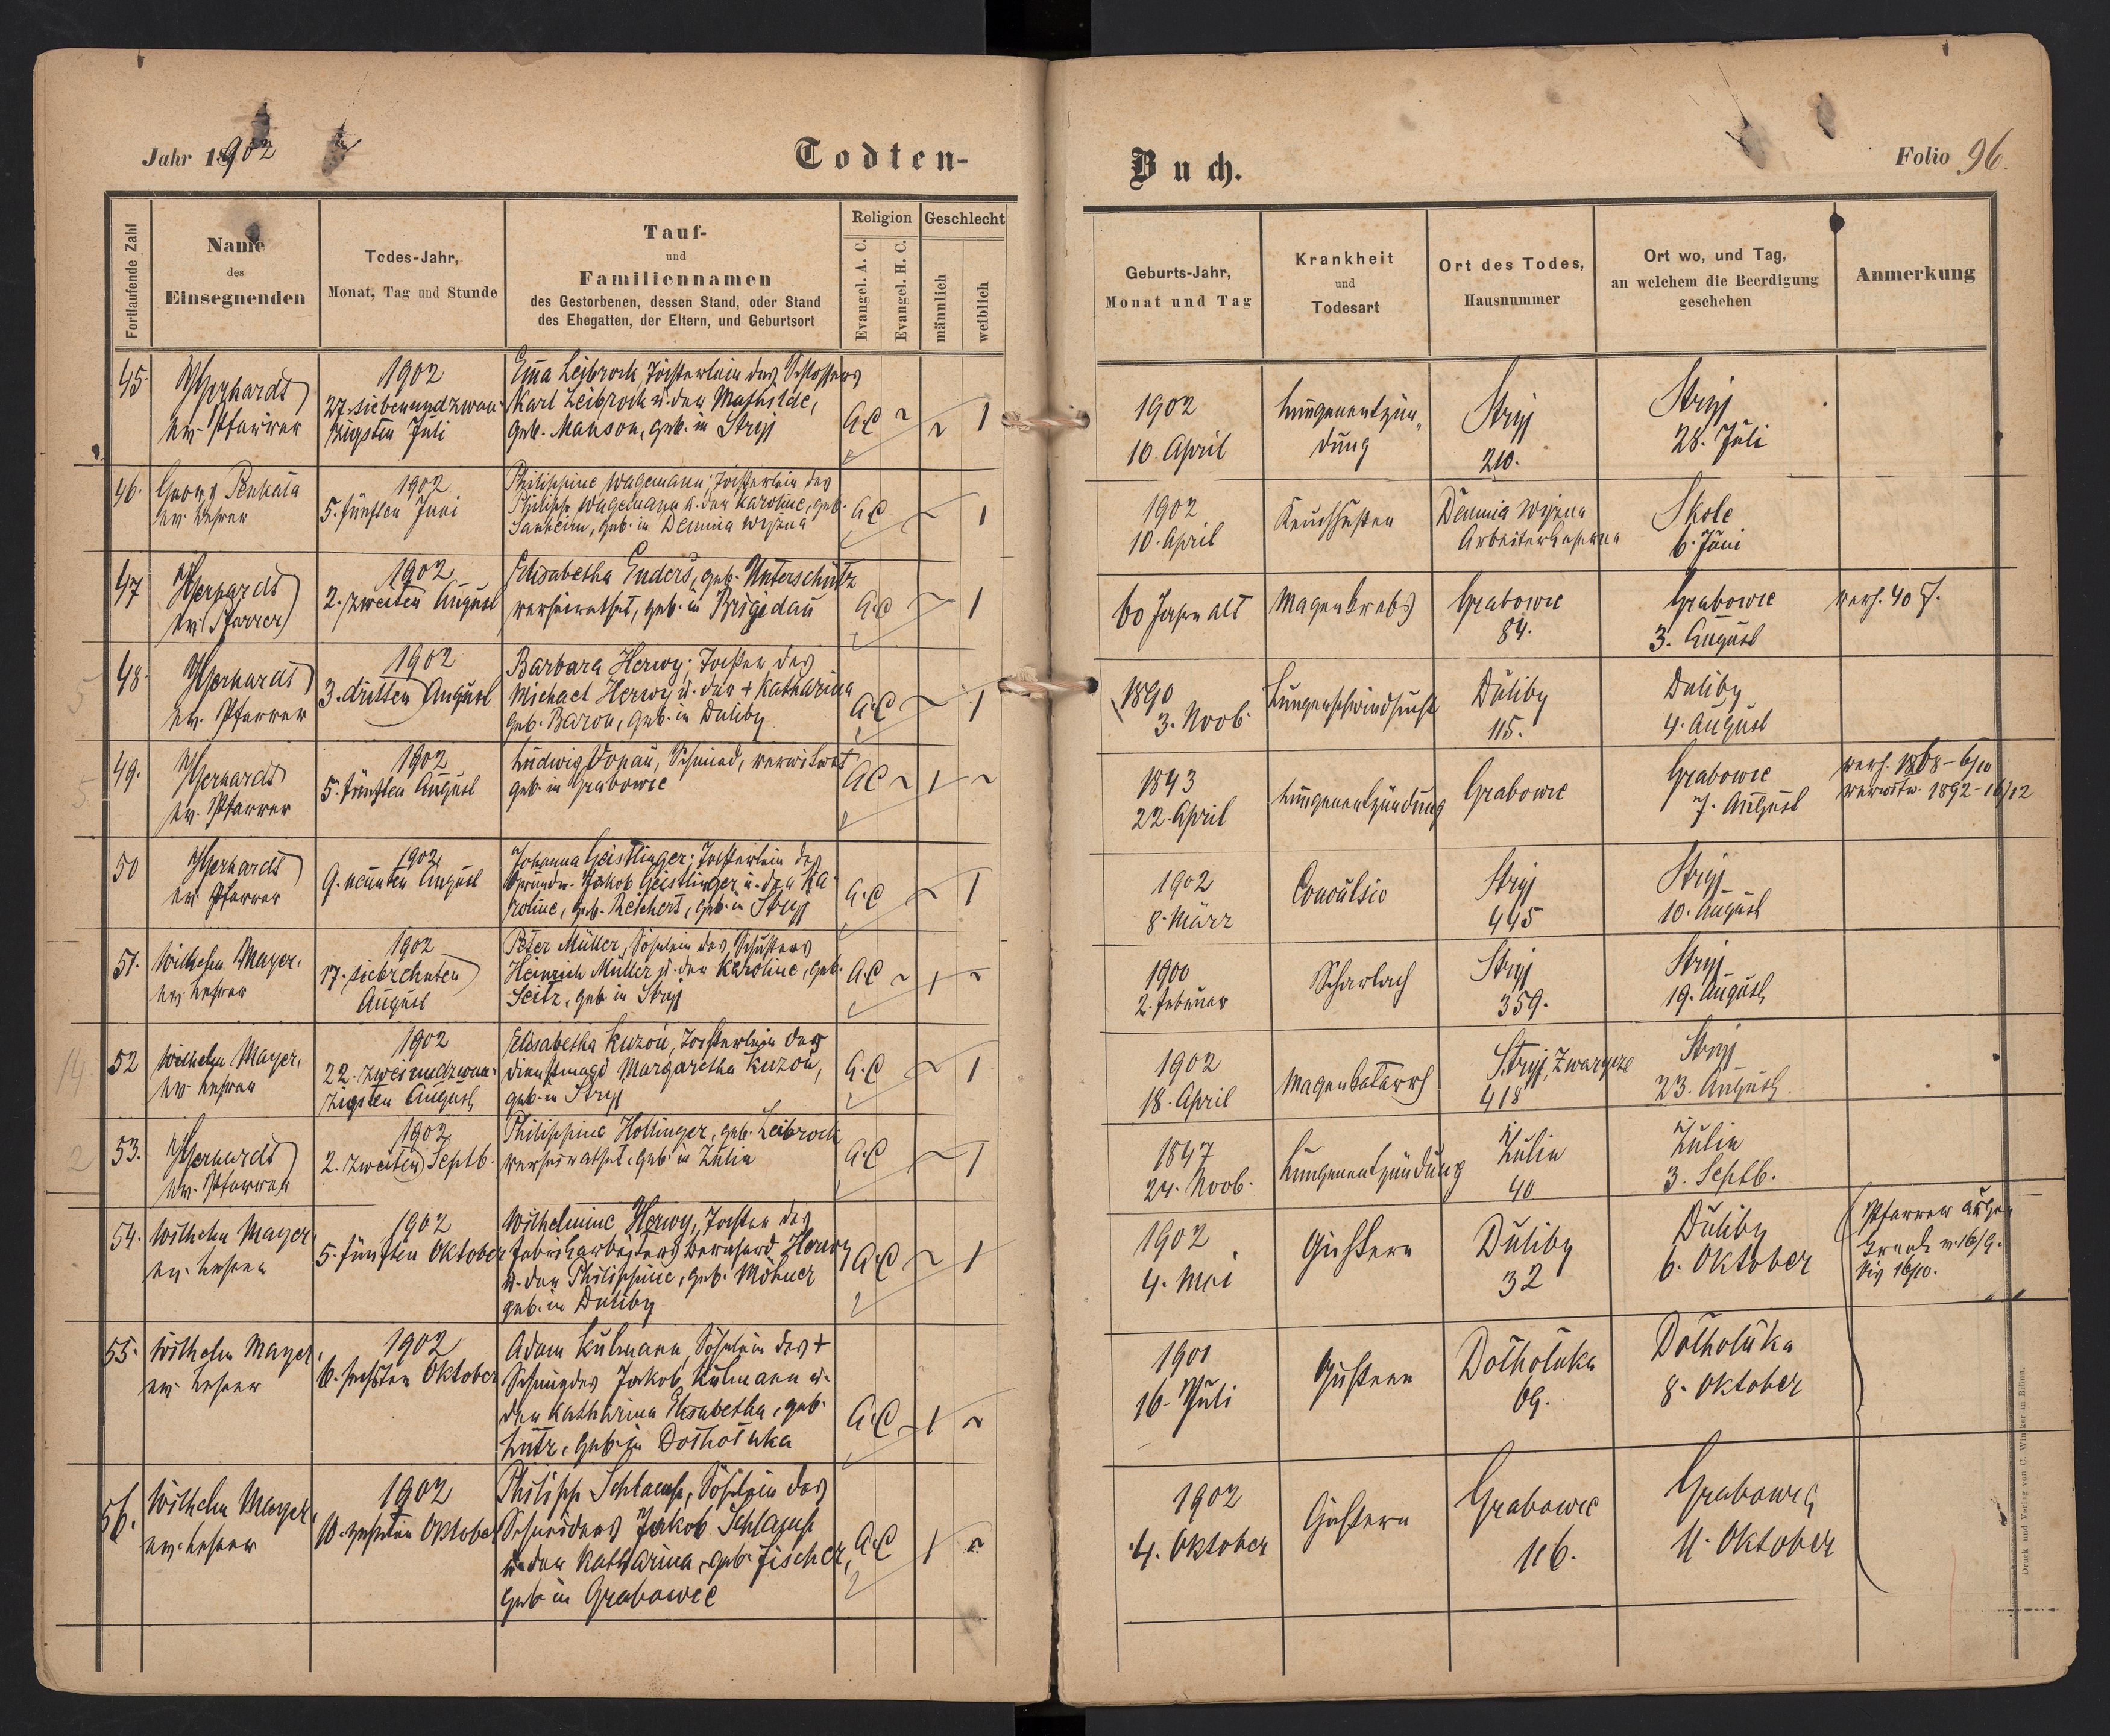 Jahr 1902
Todten-
Buch.
Folio 96.
Fortlaufende Zahl
Name
des
Einsegnenden
Todes-Jahr,
Monat, Tag und Stunde
Tauf-
und
Familiennamen
des Gestorbenen, dessen Stand, oder Stand
des Ehegatten, der Eltern, und Geburtsort
Religion
Evangel. A. C.
Evangel. H. C.
Geschlecht
männlich
weiblich
Geburts-Jahr,
Monat und Tag
Krankheit
und
Todesart
Ort des Todes,
Hausnummer
Ort wo, und Tag,
an welchem die Beerdigung
geschehen
Anmerkung
45.
ev. Pfarrer
1902
27. siebenundzwan-
zigsten Juli
Emma Leibrock, Töchterlein des Schlossers
Karl Leibrock u. der Mathilde,
geb. Manson, geb. in Stryj
A.C. ~ ~ 1
1902
10. April
Lungenentzün-
dung
Stryj
210.
Stryj
28. Juli
46.
Georg Penkala
ev. Lehrer
1902
5. fünften Juni
Philippine Wagemann; Töchterlein des
Philipp Wagemann u. der Karoline, geb.
Sanheim, geb. in Demnia wyżna
A.C. ~ 1
1902
10. April
Keuchhusten
Demnia wyżna
Skole
6. Juni
47
ev. Pfarrer
1902
2. zweiten August
Elisabetha Enders, geb. Unterschütz
verheirathet, geb. in Brigidau
A.C. ~ 1
60 Jahre alt
Magenkrebs
Grabowie
84.
Grabowie
3. August
verh. 40 J.
48.
ev. Pfarrer
1902
3. dritten August
Barbara Herwy; Tochter des
Michael Herwy u. der + Katharina
geb. Baron, geb. in Duliby
A.C. ~ 1
1890
3. Novb.
Lungenschwindsucht
Duliby
115.
Duliby
4. August
49.
ev. Pfarrer
1902
5. fünften August
Ludwig Donau, Schmied, verwitwet
geb. in Grabowie
A.C. ~ 1 ~
1843
22. April
Lungenentzündung
Grabowie
Grabowie
7. August
verh. 1868 - 6/10
verwitw. 1892 - 16/12
50
ev. Pfarrer
1902
9. neunten August
Johanna Geistlinger; Töchterlein des
Jakob Geistlinger u. der Ka-
roline, geb. Reichert, geb. in Stryj
A.C. ~ 1
1902
8. März
Convulsio
Stryj
445
Stryj
10. August
51.
Wilhelm Mayer,
ev. Lehrer
1902
17. siebzehnten
August
Peter Müller, Söhnlein des Schusters
Heinrich Müller u. der Karoline, geb.
Seitz, geb. in Stryj
A.C. ~ 1 ~
1900
2. Februar
Scharlach
Stryj
359.
Stryj
19. August
52
Wilhelm Mayer,
ev. Lehrer
1902
22. zweiundzwan-
zigsten August
Elisabetha Kuzon, Töchterlein der
Dienstmagd Margaretha Kuzon,
geb. in Stryj
A.C. ~ 1
1902
18. April
Magenkatarrh
Stryj,
418
Stryj
23. August
53.
ev. Pfarrer
1902
2. zweiten Septb.
Philippine Hollinger, geb. Leibrock
verheirathet, geb. in Zulin
A.C. ~ 1
1847
24. Novb.
Lungenentzündung
Zulin
40
Zulin
3. Septb.
54.
Wilhelm Mayer,
ev. Lehrer
1902
5. fünften Oktober
Wilhelmine Herwy, Tochter des
Fabrikarbeiters Bernhard Herwy
u. der Philippine, geb. Möhner
geb. in Duliby
A.C. ~ 1
1902
4. Mai
Gichtern
Duliby
32
Duliby
6. Oktober
Pfarrer
krank v. 16/9.
bis 16/10.
55.
Wilhelm Mayer,
ev. Lehrer
1902
6. sechsten Oktober
Adam Kulmann, Söhnlein des +
Schmiedes Jakob Kulmann u.
der Katharina Elisabetha, geb.
Lutz, geb. in Dołhołuka
A.C. ~ 1 ~
1901
16. Juli
Gichtern
Dołhołuka
69.
Dołhołuka
8. Oktober
56.
Wilhelm Mayer,
ev. Lehrer
1902
10. zehnten Oktober
Philipp Schlamp, Söhnlein des
Schneiders Jakob Schlamp
u. der Katharina, geb. Fischer,
geb. in Grabowie
A.C. 1 ~
1902
4. Oktober
Gichtern
Grabowie
116.
Grabowie
11. Oktober
Druck und Verlag von C. Winiker in Brünn.